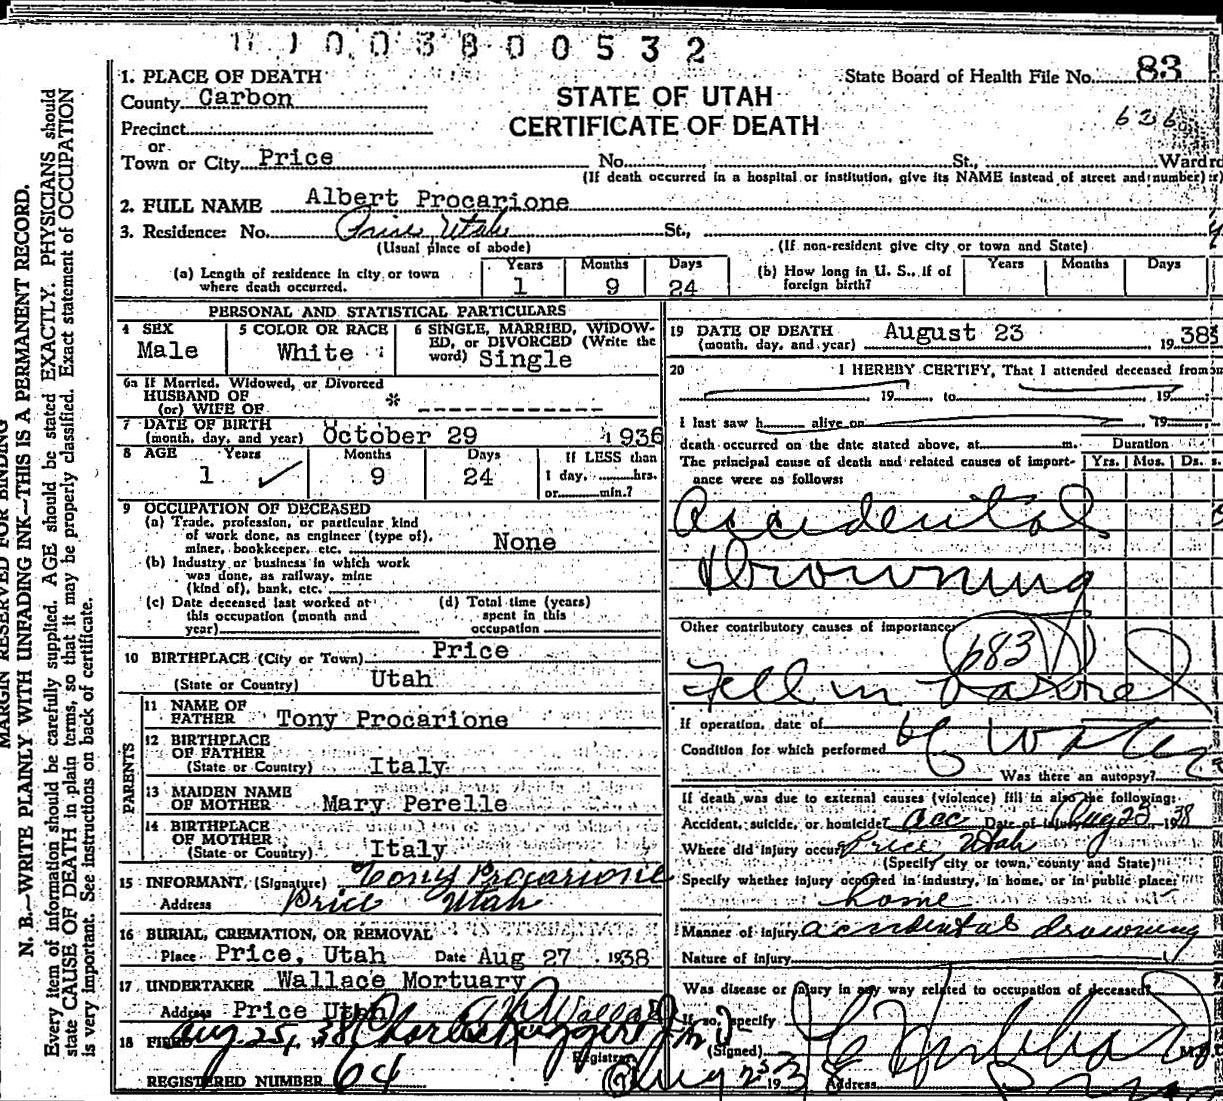 1100380053 2
1. PLACE OF DEATH
State Board of Health File No. 83
County Carbon
STATE OF UTAH
CERTIFICATE OF DEATH
626
Precinct
or
Town or City Price No. St., Ward
(If death occurred in a hospital or institution, give its NAME instead of street and number)
2. FULL NAME Albert Procarione
3. Residence: No. Price Utah St.,
(Usual place of abode) (If non-resident give city or town and State)
(a) Length of residence in city or town where death occurred. Years 1 Months 9 Days 24
(b) How long in U. S., if of foreign birth? Years Months Days
PERSONAL AND STATISTICAL PARTICULARS
4 SEX Male
5 COLOR OR RACE White
6 SINGLE, MARRIED, WIDOWED, or DIVORCED (Write the word) Single
6a If Married, Widowed, or Divorced
HUSBAND OF
(or) WIFE OF * - - - - - - - - - - - - -
7 DATE OF BIRTH
(month, day, and year) October 29 1936
8 AGE Years Months Days If LESS than
1 ✓ 9 24 1 day, hrs.
or min.?
9 OCCUPATION OF DECEASED
(a) Trade, profession, or particular kind
of work done, as engineer (type of),
miner, bookkeeper, etc. None
(b) Industry or business in which work
was done, as railway, mine
(kind of), bank, etc.
(c) Date deceased last worked at
this occupation (month and
year)
(d) Total time (years)
spent in this
occupation
10 BIRTHPLACE (City or Town) Price
(State or Country) Utah
PARENTS
11 NAME OF
FATHER Tony Procarione
12 BIRTHPLACE
OF FATHER
(State or Country) Italy
13 MAIDEN NAME
OF MOTHER Mary Perelle
14 BIRTHPLACE
OF MOTHER
(State or Country) Italy
15 INFORMANT, (Signature) Tony Procarione
Address Price Utah
16 BURIAL, CREMATION, OR REMOVAL
Place Price, Utah Date Aug 27 1938
17 UNDERTAKER Wallace Mortuary
Address Price Utah
18 FILED Aug. 25, 38
Registrar
REGISTERED NUMBER 64
19 DATE OF DEATH
(month, day, and year) August 23 1938
20 I HEREBY CERTIFY, That I attended deceased from
19 to 19
I last saw h alive on 19
death occurred on the date stated above, at m.
Duration
The principal cause of death and related causes of importance were as follows:
Yrs. Mos. Ds.
Accidental
Drowning
Other contributory causes of importance:
683
Fell in Barrel
of Water
If operation, date of
Condition for which performed
Was there an autopsy?
If death was due to external causes (violence) fill in also the following:
Accident, suicide, or homicide? acc Date of injury Aug 23 1938
Where did injury occur? Price Utah
(Specify city or town, county and State)
Specify whether injury occurred in industry, in home, or in public place:
home
Manner of injury accidental drowning
Nature of injury
Was disease or injury in any way related to occupation of deceased?
If so, specify
(Signed) M.D.
Aug 23 1938 Address
MARGIN RESERVED FOR BINDING
N. B.—WRITE PLAINLY WITH UNFADING INK—THIS IS A PERMANENT RECORD.
Every item of information should be carefully supplied. AGE should be stated EXACTLY. PHYSICIANS should
state CAUSE OF DEATH in plain terms, so that it may be properly classified. Exact statement of OCCUPATION
is very important. See instructions on back of certificate.